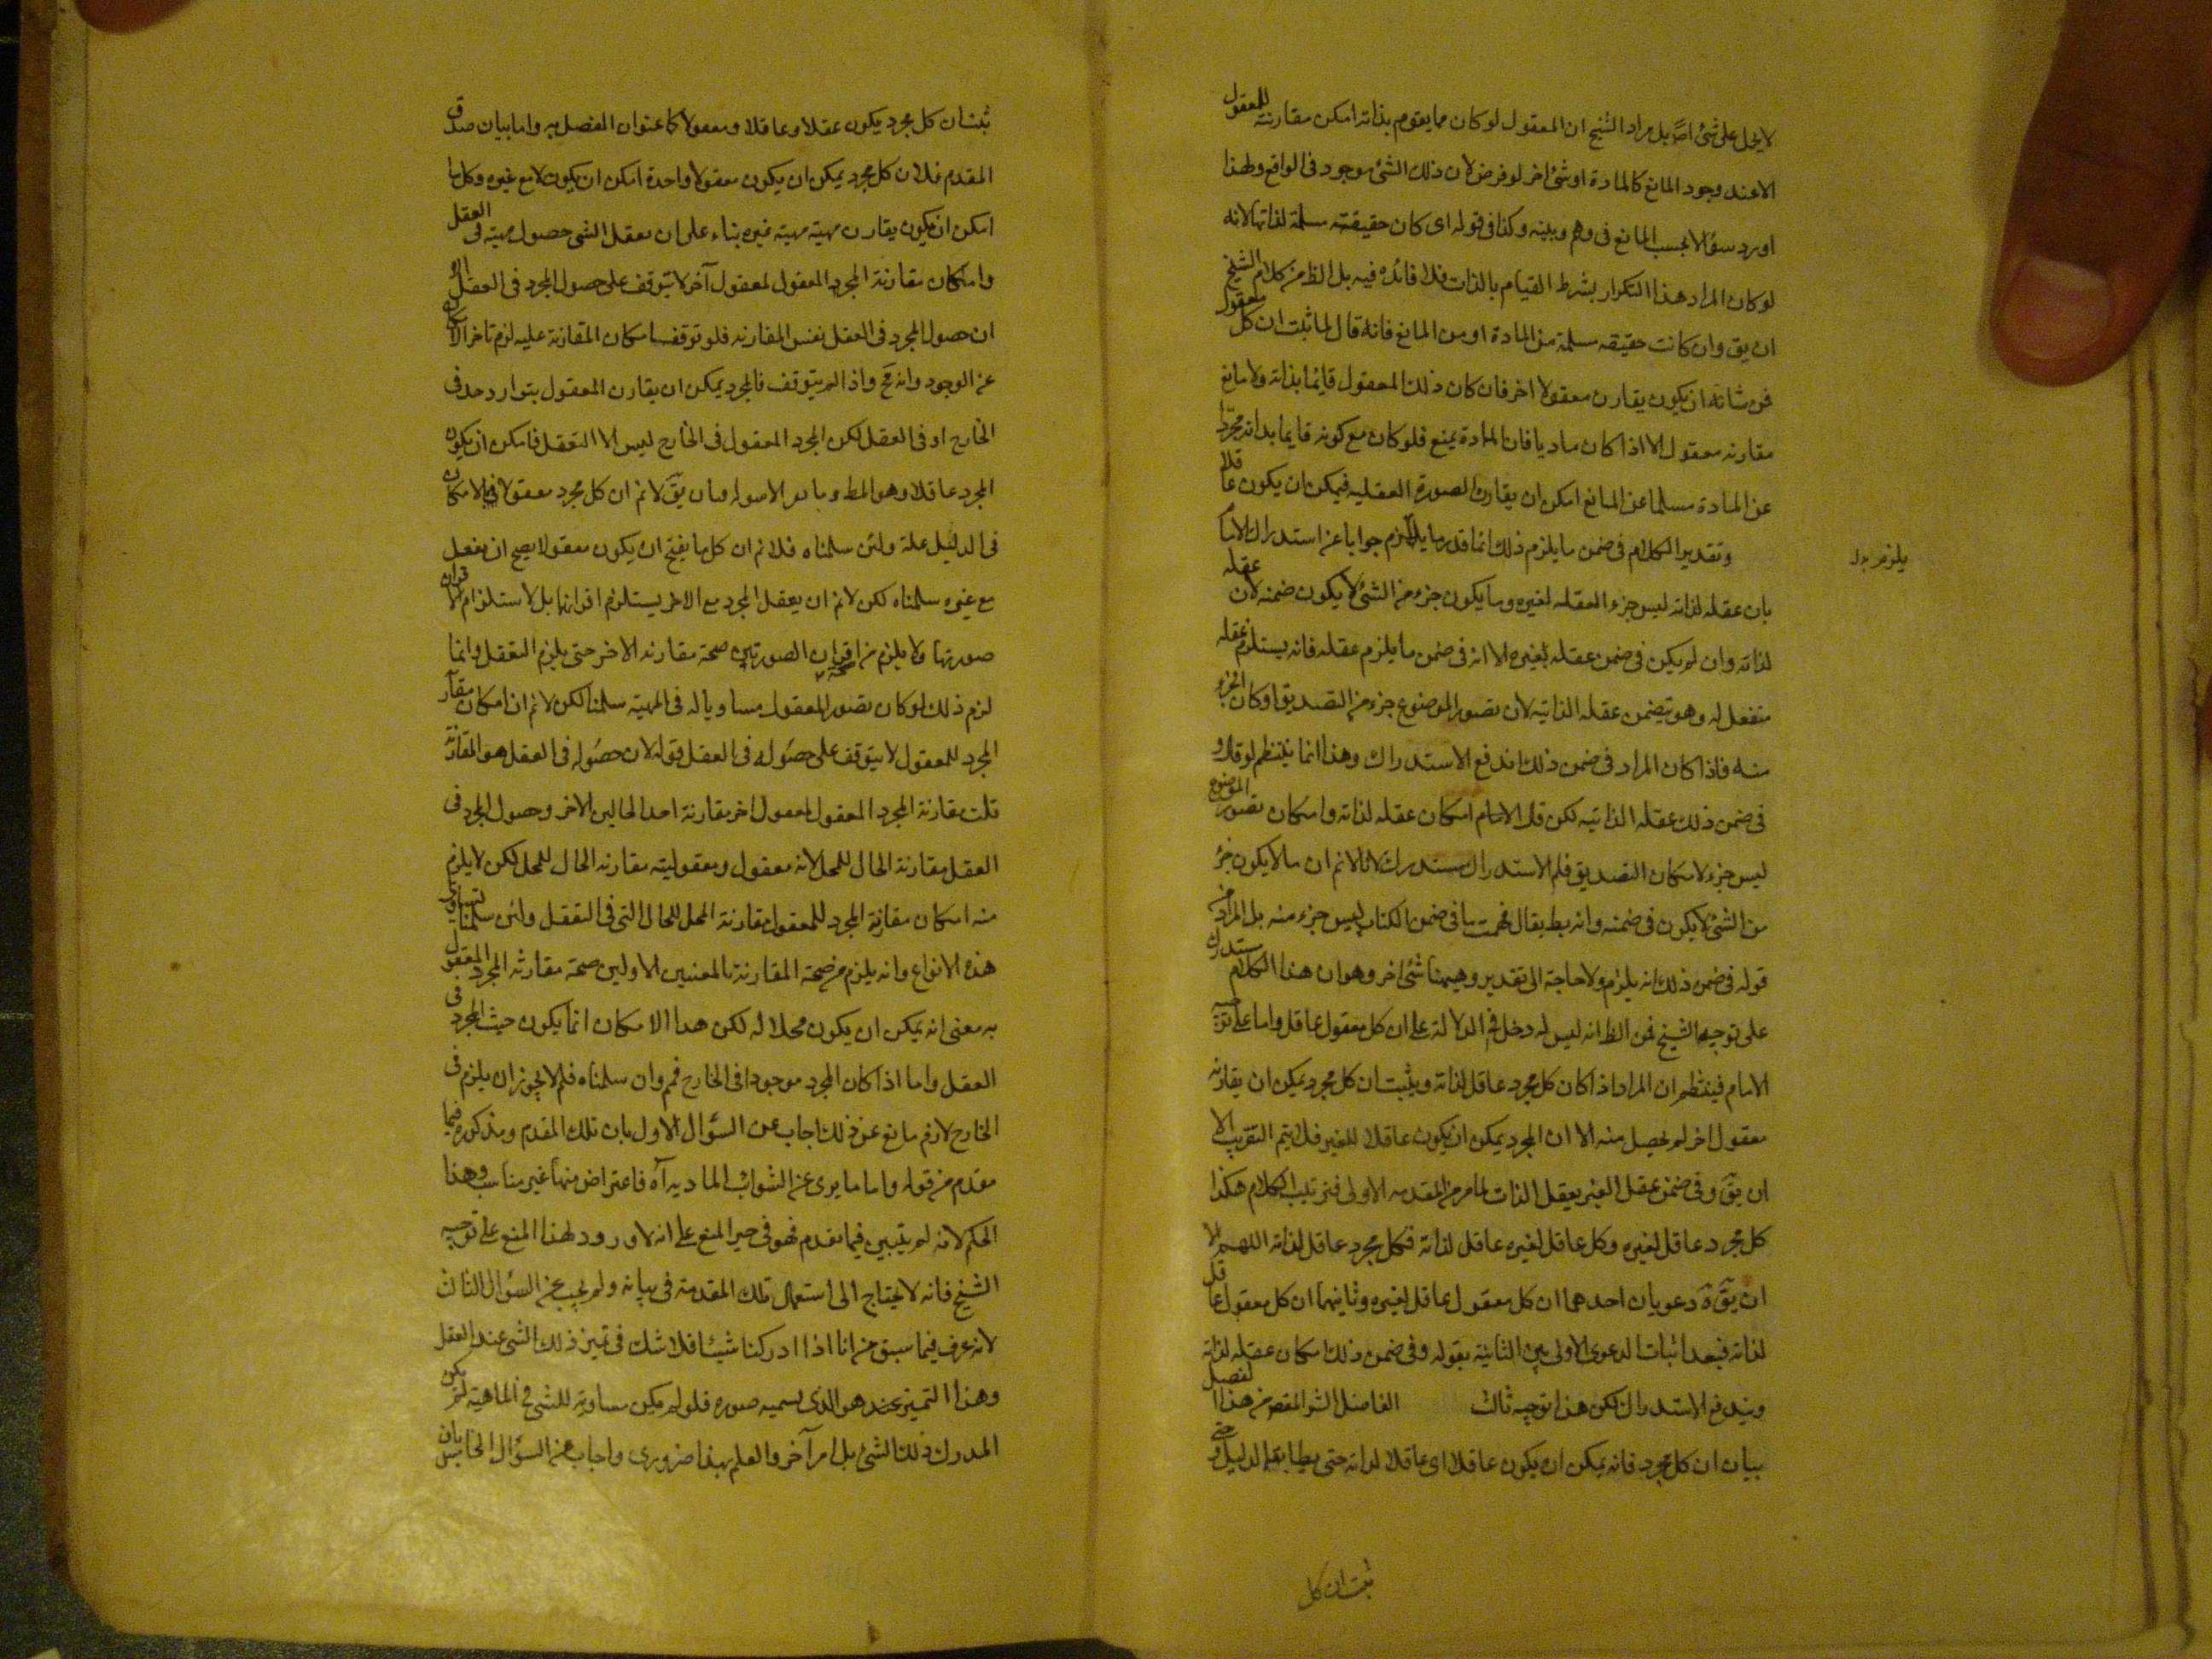 لا يحل على شئ اصلا بل مراد الشيخ ان المعقول لو كان مما يقوم بذاته امكن مقارنته للمعقول
الا عند وجود المانع كالمادة او شئ اخر لو فرض لان ذلك الشئ موجود فى الواقع ولهذا
اورد سؤالا بحسب المانع فى وهم وبينه وكذا فى قوله اى كان حقيقته مسلمة لذاتها لانه
لو كان المراد هذا التكرار بشرط القيام بالذات فلا فائده فيه بل الظ من كلام الشيخ
ان يق وان كانت حقيقه مسلمة من المادة او من المانع فانه قال لما ثبت ان كل معقول
فمن شانه ان يكون يقارن معقولا اخر فان كان ذلك المعقول قايما بذاته ولا مانع
مقارنه معقول الا اذا كان ماديا فان المادة يمنع فلو كان مع كونه قايما بذاته مجردا
عن المادة مسلما عن المانع امكن ان يقارن الصورة العقليه فيمكن ان يكون عاقلا
وتقدير الكلام فى ضمن ما يلزم ذلك انما قدر ما يلزم جوابا عن استدراك الامام
يلزم بدل
بان عقله لذاته ليس جزء العقله لغيره وما يكون جزء من الشئ لا يكون ضمنه لان عقله
لذاته وان لم يكن فى ضمن عقله لغيره الا انه فى ضمن ما يلزم عقله فانه يستلزم عقله
منفعل له وهو يتضمن عقله الذاتيه لان تصور الموضوع جزء من التصديق او كان الجزء
منه فاذا كان المراد فى ضمن ذلك اندفع الاستدراك وهذا انما ينتظم لو قال و
فى ضمن ذلك عقله الذاتيه لكن قال الامام امكان عقله لذاته وامكان تصور الموضوع
ليس جزء لامكان التصديق فلم الاستدراك مستدرك لانا لا نم ان ما لا يكون جزء
من الشئ لا يكون فى ضمنه وانه بط يقال فهمت ما فى ضمن الكتاب ليس جزء منه بل المراد من
قوله فى ضمن ذلك انه يلزم ولا حاجة الى تقدير وههنا شئ اخر وهو ان هذا الكلام مستدرك
على توجيه الشيخ فمن الظ انه ليس له دخل فى الدلالة على ان كل معقول عاقل واما على توجيه
الامام فينتظم ان المراد اذا كان كل مجرد عاقل لذاته ويثبت ان كل مجرد يمكن ان يقارنه
معقول اخر لم يحصل منه الا ان المجرد يمكن ان يكون عاقلا للغير فلا يتم التقريب الا
ان يق وفى ضمن عقل الغير يعقل الذات لما مر من المقدمه الاولى فترتيب الكلام هكذا
كل مجرد عاقل لغيره وكل عاقل لغيره عاقل لذاته فكل مجرد عاقل لذاته اللهم الا
ان يق دعويان احدهما ان كل معقول عاقل لغيره وثانيهما ان كل معقول عاقل
لذاته فبعد اثبات الدعوى الاولى بين الثانية بقوله وفى ضمن ذلك امكان عقله لذاته
ويندفع الاستدراك لكن هذا توجيه ثالث الفاضل الشر المقصر من هذا الفصل
بيان ان كل مجرد فانه يمكن ان يكون عاقلا اى عاقلا لذاته حتى يطابقه الدليل و حتى
ثبت ان كل
ثبت ان كل مجرد يكون عقلا وعاقلا ومعقولا كما عنوان الفصل به واما بيان صدق
المقدم فلان كل مجرد يمكن ان يكون معقولا واحدة امكن ان يكون لا مع غيره وكل ما
امكن ان يكون يقارن مهيته مهية غيره بناء على ان تعقل الشى حصول مهيته فى العقل
وامكان مقارنة المجرد المعقول لمعقول آخر لا يتوقف على حصول المجرد فى العقل
ان حصول المجرد فى العقل نفس المقارنه فلو توقف امكان المقارنة عليه لزم تاخر الامكان
عن الوجود وانه مح واذا لم يتوقف فالمجرد يمكن ان يقارن المعقول بتوارد حد فى
الخارج او فى العقل لكن المجرد المعقول فى الخارج ليس الا التعقل فامكن ان يكون
المجرد عاقلا وهو المط وما الاسوله فبان يق لا نم ان كل مجرد معقولا فالامكان
فى الدليل علة ولئن سلمناه فلا نم ان كل ما يفتح ان يكون معقولا يصح ان يعقل
مع غيره سلمناه لكن لا نم ان يعقل المجرد مع الاخر يستلزم اقترانها بل لا ستلزام الا قران
صورتها ولا يلزم من اقران الصورتين صحة مقارنه الاخر حتى يلزم التعقل وانما
لزم ذلك لو كان تصور المعقول مساويا له فى المهية سلمنا لكن لا نم ان امكان مقارنة
المجرد للمعقول لا يتوقف على حصوله فى العقل قوله لان حصوله فى العقل هو المقارنة
قلت مقارنة المجرد المعقول لمعقول اخر مقارنة احد الحالين الاخر وحصول المجرد فى
العقل مقارنة الحال للمحل لانه معقول ومعقوليته مقارنه الحال للمحل لكن لا يلزم
منه امكان مقارنة المجرد للمعقول مقارنة المحل للحال التى فى التعقل ولئن سلمنا تساوى
هذه الانواع وانه يلزم من صحة المقارنة بالمعنيين الاولين صحة مقارنه المجرد المعقول
به معنى انه يمكن ان يكون محلا له لكن هدا الامكان انما يكون حيث المجرد فى
العقل واما اذا كان المجرد موجودا فى الخارج فم وان سلمناه فلم لا يجوز ان يلزم فى
الخارج لازم مانع عن ذلك اجاب عن السؤال الاول بان تلك المقدم ومذكوره فيما
مقدم من قوله واما ما يرى عن الشوائب الماديه آه فاعتراض منها غير مناسب وهذا
الحكم لانه لم يتبين فيما تقدم فهو فى حيز المنع على انه لا ورود لهذا المنع على توجيه
الشيخ فانه لا يحتاج الى استعمال تلك المقدمة فى بيانه ولم يجب عن السؤال الثالث
لانه عرف فيما سبق من انا اذا ادركنا شيئا فلا شك فى تميز ذلك الشى عند العقل
وهذا التميز عنده هو الذى نسميه صوره فلو لم يكن مساوية للشئ فى الماهية لم يكن
المدرك ذلك الشئ بل امر آخر والعلم بهذا ضرورى واجاب عن السؤال الخامس بان